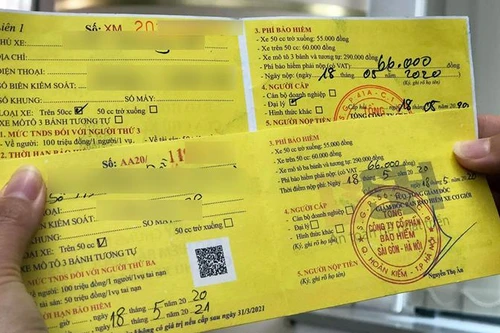 Liên 1
Số: XM 20
CHỦ XE:
ĐỊA CHỈ:
ĐIỆN THOẠI:
SỐ BIỂN KIỂM SOÁT:
SỐ KHUNG: SỐ MÁY:
LOẠI XE: Trên 50cc
XE MÔTÔ 3 BÁNH TƯƠNG TỰ
1. MỨC TNDS ĐỐI VỚI NGƯỜI THỨ 3
- Về người: 100 triệu đồng/1 người/1 vụ.
2. THỜI HẠN BẢO HIỂM
3. PHÍ BẢO HIỂM
- Xe 50 cc trở xuống: 55.000 đồng
- Xe trên 50 cc: 60.000 đồng
- Xe mô tô 3 bánh và tương tự: 290.000 đồng
- Phí bảo hiểm phải nộp (có VAT) 66.000
Ngày nộp: 18 tháng 05 năm 2020
4. NGƯỜI CẤP
- Cán bộ doanh nghiệp
- Đại lý
- Hình thức khác:
5. NGƯỜI NỘP TIỀN
Số: AA20/ 119
KIỂM SOÁT:
KHUNG:
XE: Trên 50 cc
XE MÔ TÔ 3 BÁNH TƯƠNG TỰ
MỨC TNDS ĐỐI VỚI NGƯỜI THỨ BA
về người: 100 triệu đồng/1 người/1 vụ tai nạn
HẠN BẢO HIỂM
giờ, ngày 18 tháng 5 năm 20 20
18 5 năm 20 21
không có giá trị nếu cấp sau ngày 31/3/2021
3. PHÍ BẢO HIỂM
- Xe 50 cc trở xuống: 55.000 đồng
- Xe trên 50 cc: 60.000 đồng
- Xe mô tô 3 bánh và tương tự: 290.000 đồng
- Phí bảo hiểm phải nộp (có VAT): 66.000 đồng
Thời điểm nộp phí: 18 tháng 5 năm 2020
4. NGƯỜI CẤP
- Cán bộ doanh nghiệp
- Đại lý
- Hình thức khác:
(Ký, ghi rõ họ tên)
TỔNG
CÔNG TY CỔ PHẦN
BẢO HIỂM
SÀI GÒN - HÀ NỘI
Q. HOÀN KIẾM - T.P HÀ NỘI
BẢO HIỂM XE CƠ GIỚI
Nguyễn Thị An
5. NGƯỜI NỘP TIỀN
(Ký, ghi rõ họ tên)